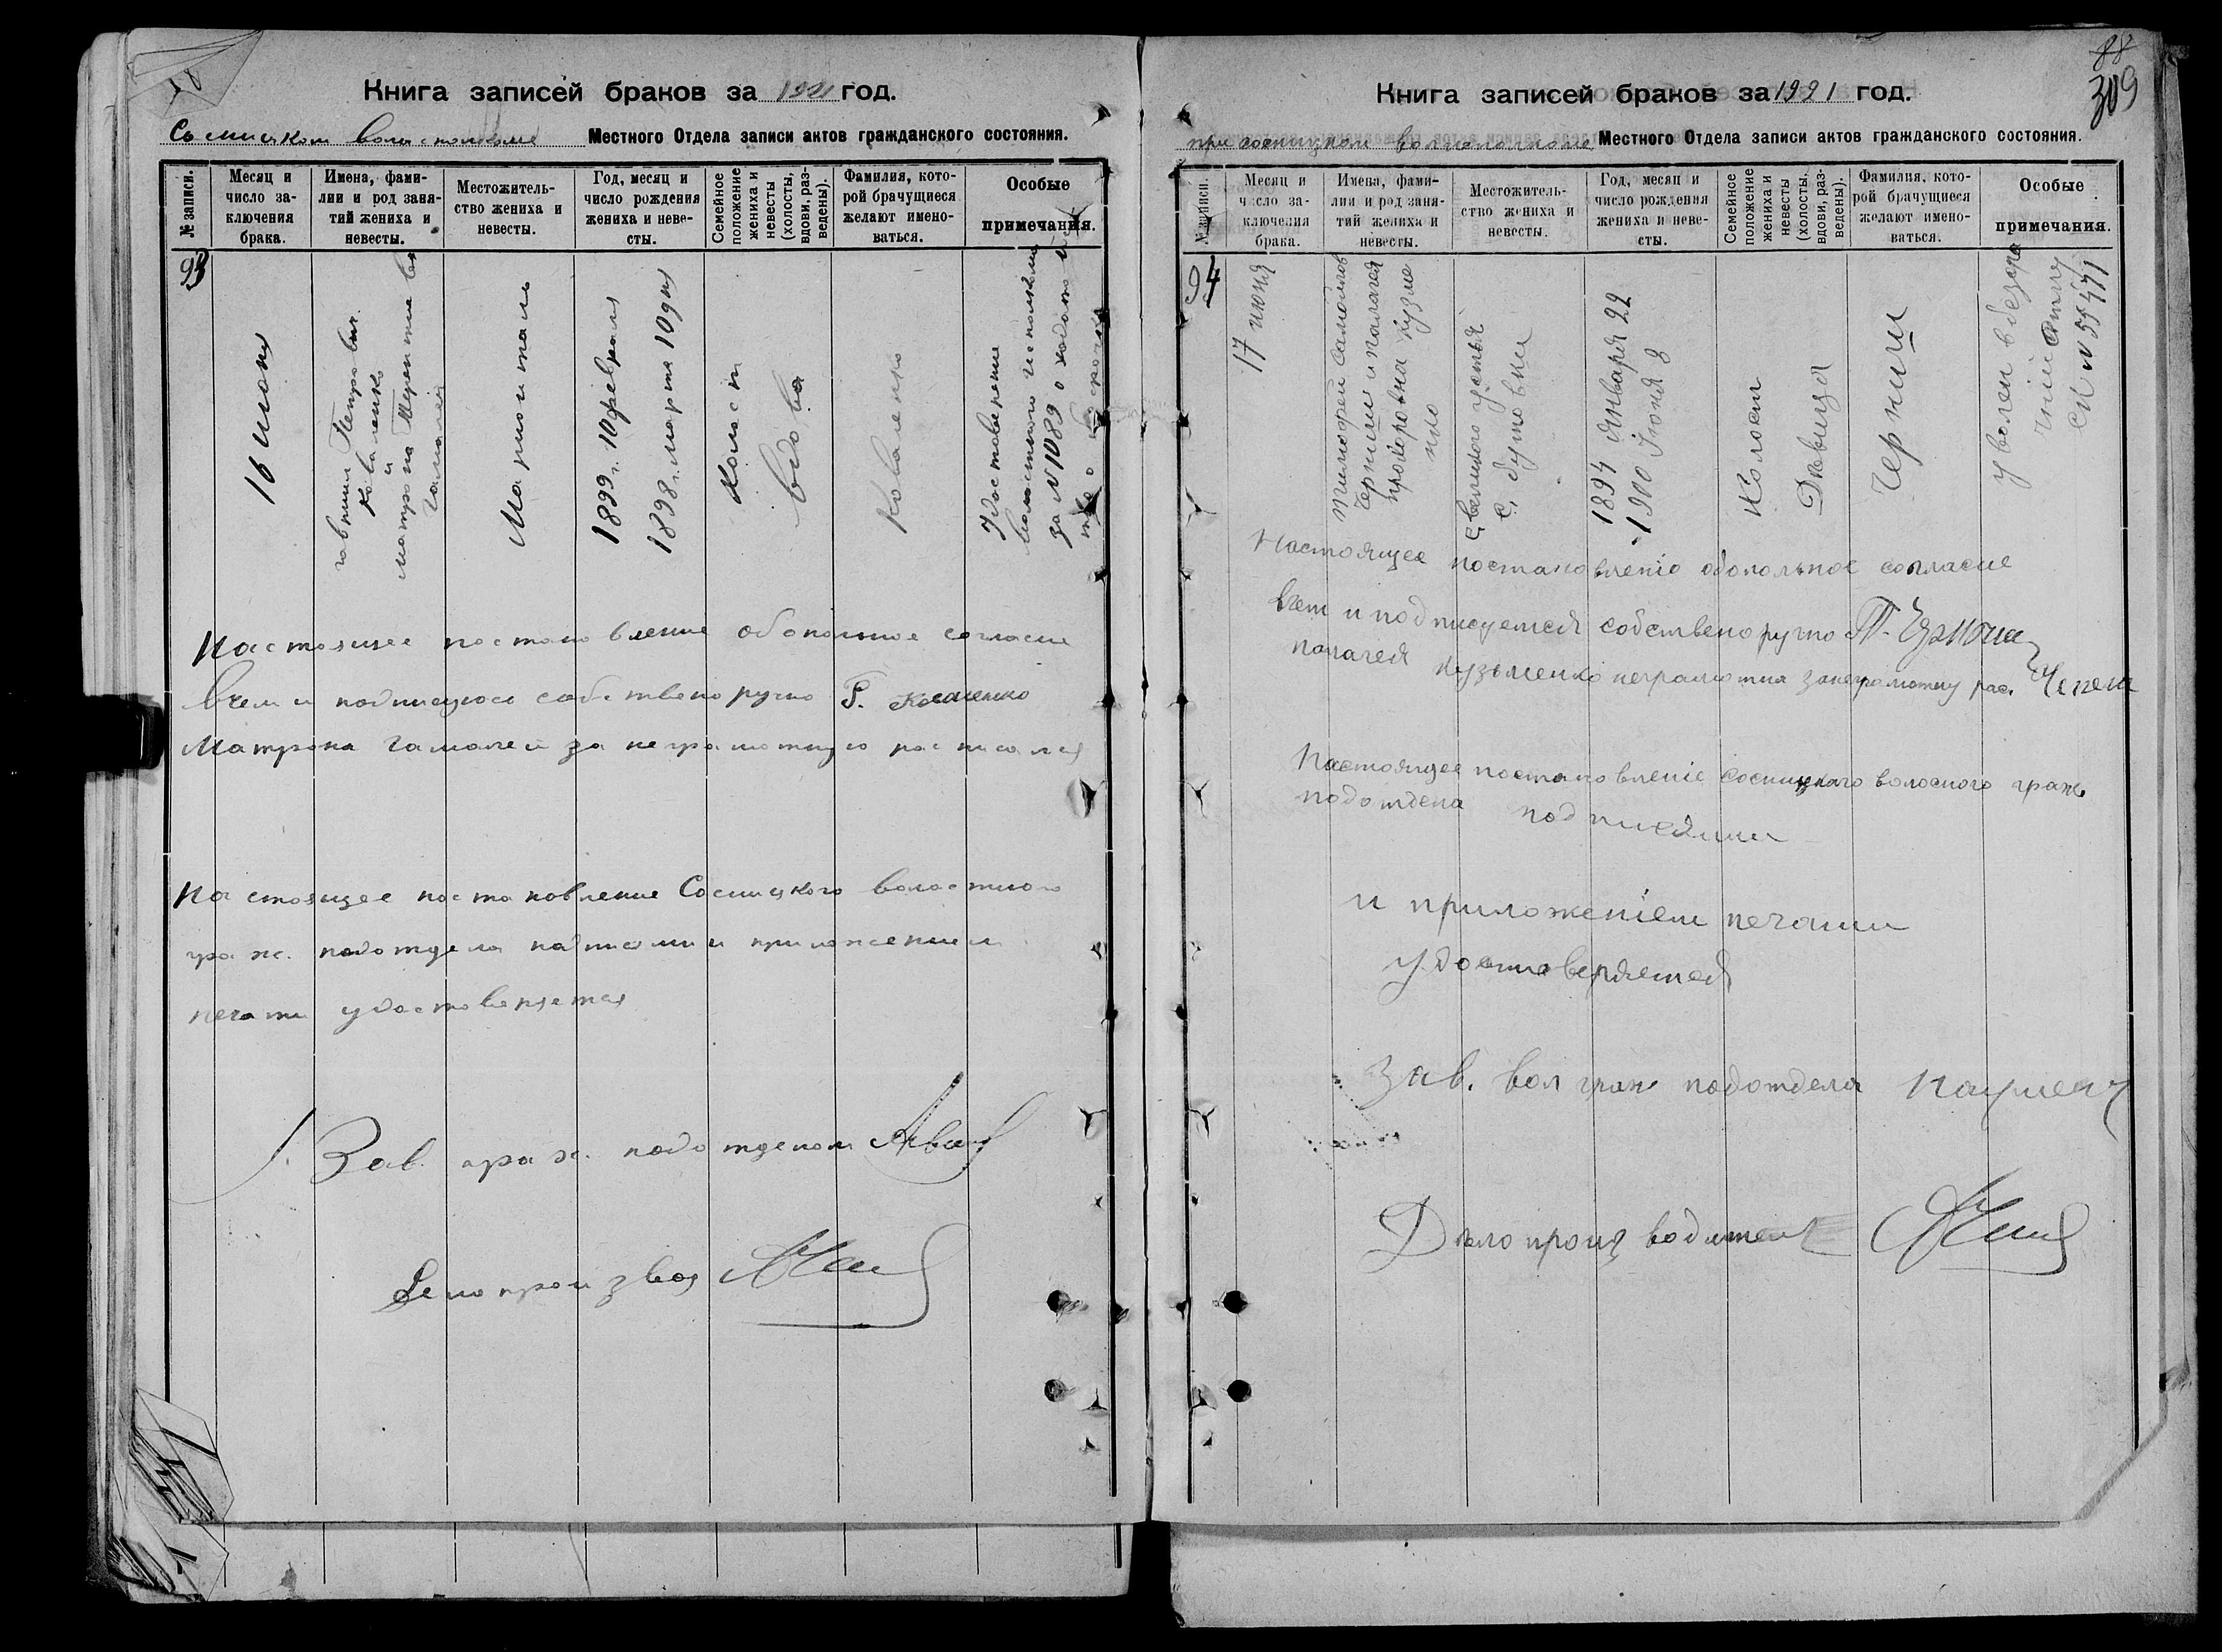 Книга записей браков за 1921 год.
Местного Отдела записи актов гражданского состояния.
№ записи.
Месяц и число за-
ключения
брака.
Имена, фами-
лии и род заня-
тий жениха и
невесты.
Местожитель-
ство жениха и
невесты.
Год, месяц и
число рождения
жениха и неве-
сты.
Семейное
положение
жениха и
невесты
(холосты,
вдовы, раз-
ведены).
Фамилия, кото-
рой брачущиеся
желают имено-
ваться.
Особые
примечания.
93
16 июня
Петров
Коваленко
и
Матрона
Гамалей
1899 г. 10 февраля
1898 г. марта 10 дня
Холост
вдова
Коваленко
Удостоверение
за № 1089
Настоящее постановление обопольное согласие
в чем и подписуюся собствено ручно Г. Коваленко
Матрона Гамалей за неграмотную росписался
Настоящее постановление Сосницкого волостного
граж. подотдела подписями и приложением
печати удостоверяется
Зав. граж. подотделом
Делопроизвод
88
309
Книга записей браков за 1921 год.
при сосницком Местного Отдела записи актов гражданского состояния.
№ записи.
Месяц и
число за-
ключения
брака.
Имена, фами-
лии и род заня-
тий жениха и
невесты.
Местожитель-
ство жениха и
невесты.
Год, месяц и
число рождения
жениха и неве-
сты.
Семейное
положение
жениха и
невесты
(холосты,
вдовы, раз-
ведены).
Фамилия, кото-
рой брачущиеся
желают имено-
ваться.
Особые
примечания.
94
17 июня
Тимофей Самойлов
Черниш и Палагея
прохоровна Кузме
нко
с великого устья
с. бутовки
1894 Января 22
1900 Іюня 8
Холост
Дѣвица
Черниш
уволен в безсро
чній отпу
ск № 55471
Настоящее постановленіе обопольное согласие
вчем и подписуемся собствено ручно Т.
Палагея Кузьменко неграмотна за неграмотну рас.
Настоящее постановленіе сосницкаго волосного граж
подотдела подписями
и приложеніем печати
удостоверяется
Зав. вол граж подотдела
Дѣлопроизводитель